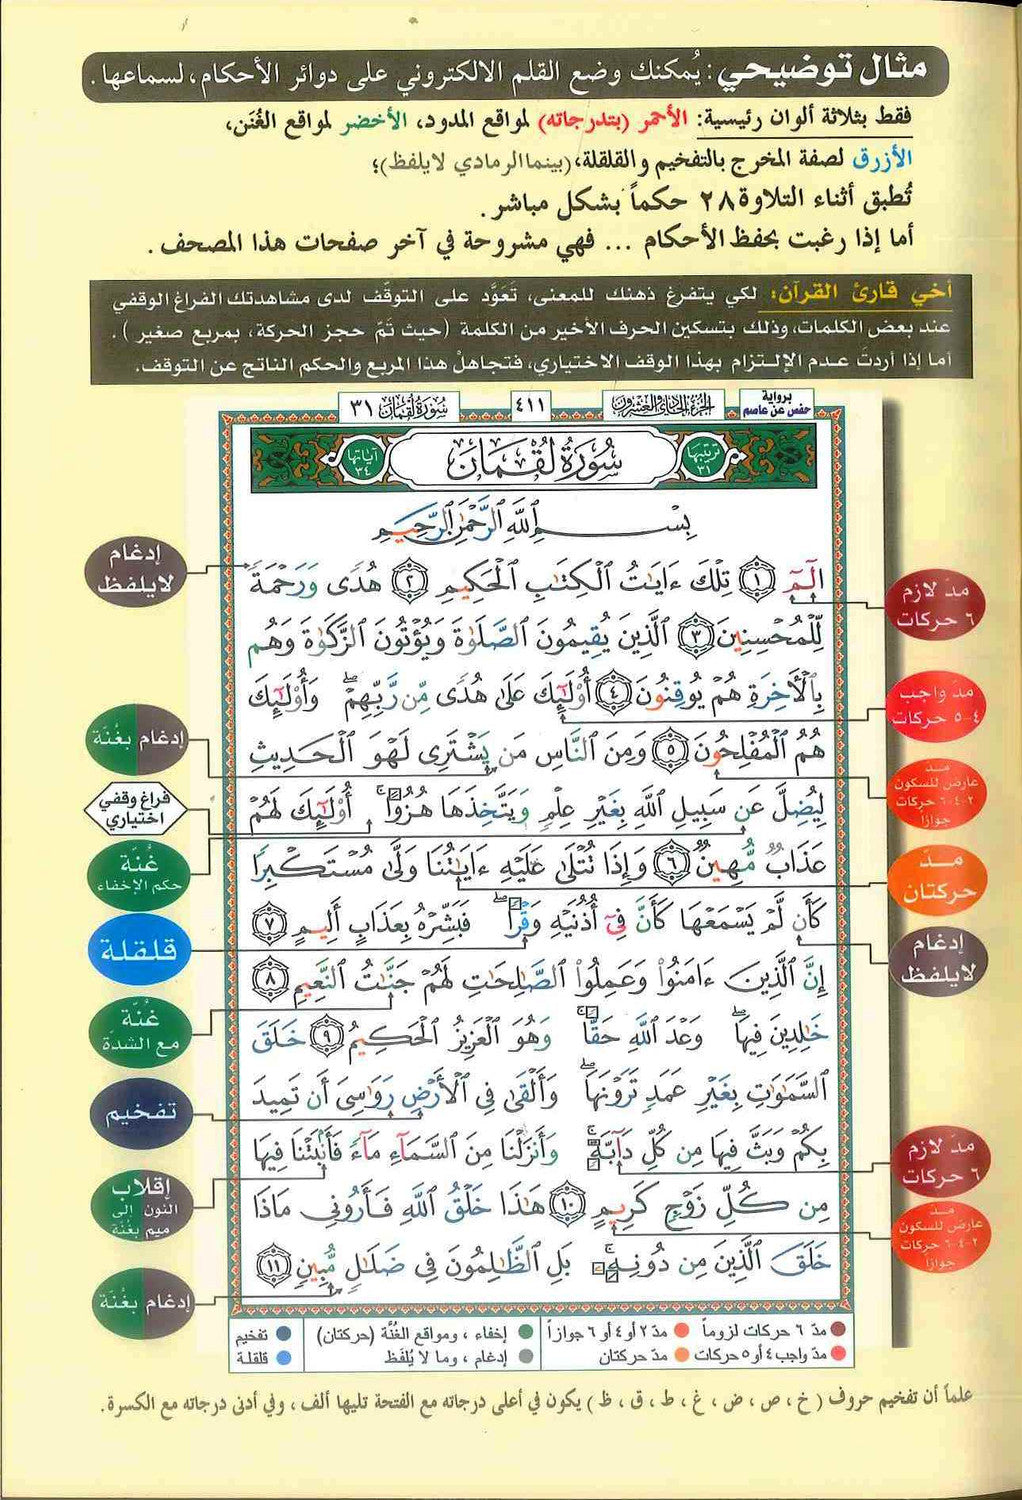 مثال توضيحي: يُمكنك وضع القلم الالكتروني على دوائر الأحكام، لسماعها.
فقط بثلاثة ألوان رئيسية: الأحمر (بتدرجاته) لمواقع المدود، الأخضر لمواقع الغُنَن،
الأزرق لصفة المخرج بالتفخيم والقلقلة، (بينما الرمادي لا يلفظ)؛
تُطبق أثناء التلاوة ٢٨ حكماً بشكل مباشر.
أما إذا رغبت بحفظ الأحكام ... فهي مشروحة في آخر صفحات هذا المصحف.
أخي قارئ القرآن: لكي يتفرغ ذهنك للمعنى، تَعَوَّد على التوقّف لدى مشاهدتك الفراغ الوقفي
عند بعض الكلمات، وذلك بتسكين الحرف الأخير من الكلمة (حيث تمَّ حجز الحركة، بمربع صغير).
أما إذا أردتَ عدم الإلتزام بهذا الوقف الاختياري، فتجاهلْ هذا المربع والحكم الناتج عن التوقف.
برواية
حفص عن عاصم
الجزء الحادي والعشرون
٤١١
سورة لقمان ٣١
ترتيبها
٣١
سُورَةُ لُقْمَان
آياتها
٣٤
بِسْمِ ٱللَّهِ ٱلرَّحْمَٰنِ ٱلرَّحِيمِ
الٓمٓ ١ تِلْكَ ءَايَٰتُ ٱلْكِتَٰبِ ٱلْحَكِيمِ ٢ هُدًى وَرَحْمَةً
لِّلْمُحْسِنِينَ ٣ ٱلَّذِينَ يُقِيمُونَ ٱلصَّلَوٰةَ وَيُؤْتُونَ ٱلزَّكَوٰةَ وَهُم
بِٱلْءَاخِرَةِ هُمْ يُوقِنُونَ ٤ أُو۟لَٰٓئِكَ عَلَىٰ هُدًى مِّن رَّبِّهِمْ ۖ وَأُو۟لَٰٓئِكَ
هُمُ ٱلْمُفْلِحُونَ ٥ وَمِنَ ٱلنَّاسِ مَن يَشْتَرِى لَهْوَ ٱلْحَدِيثِ
لِيُضِلَّ عَن سَبِيلِ ٱللَّهِ بِغَيْرِ عِلْمٍ وَيَتَّخِذَهَا هُزُوًا ۚ أُو۟لَٰٓئِكَ لَهُمْ
عَذَابٌ مُّهِينٌ ٦ وَإِذَا تُتْلَىٰ عَلَيْهِ ءَايَٰتُنَا وَلَّىٰ مُسْتَكْبِرًا
كَأَن لَّمْ يَسْمَعْهَا كَأَنَّ فِىٓ أُذُنَيْهِ وَقْرًا ۖ فَبَشِّرْهُ بِعَذَابٍ أَلِيمٍ ٧
إِنَّ ٱلَّذِينَ ءَامَنُوا۟ وَعَمِلُوا۟ ٱلصَّٰلِحَٰتِ لَهُمْ جَنَّٰتُ ٱلنَّعِيمِ ٨
خَٰلِدِينَ فِيهَا ۖ وَعْدَ ٱللَّهِ حَقًّا ۚ وَهُوَ ٱلْعَزِيزُ ٱلْحَكِيمُ ٩ خَلَقَ
ٱلسَّمَٰوَٰتِ بِغَيْرِ عَمَدٍ تَرَوْنَهَا ۖ وَأَلْقَىٰ فِى ٱلْأَرْضِ رَوَٰسِىَ أَن تَمِيدَ
بِكُمْ وَبَثَّ فِيهَا مِن كُلِّ دَآبَّةٍ ۚ وَأَنزَلْنَا مِنَ ٱلسَّمَآءِ مَآءً فَأَنۢبَتْنَا فِيهَا
مِن كُلِّ زَوْجٍ كَرِيمٍ ١٠ هَٰذَا خَلْقُ ٱللَّهِ فَأَرُونِى مَاذَا
خَلَقَ ٱلَّذِينَ مِن دُونِهِۦ ۚ بَلِ ٱلظَّٰلِمُونَ فِى ضَلَٰلٍ مُّبِينٍ ١١
مدّ لازم
٦ حركات
مدّ واجب
٤-٥ حركات
مـد
عارض للسكون
٢-٤-٦ حركات
جوازًا
مـدّ
حركتان
إدغام
لا يلفظ
مدّ لازم
٦ حركات
مـد
عارض للسكون
٢-٤-٦ حركات
جوازًا
إدغام
لا يلفظ
إدغام بغُنّة
فراغ وقفي
اختياري
غُنّة
حكم الإخفاء
قلقلة
غُنّة
مع الشدّة
تفخيم
إقلاب
النون إلى
ميم بغُنّة
إدغام بغُنّة
مدّ ٦ حركات لزوماً
مدّ ٢ أو ٤ أو ٦ جوازاً
إخفاء، ومواقع الغُنّة (حركتان)
تفخيم
مدّ واجب ٤ أو ٥ حركات
مدّ حركتان
إدغام، وما لا يُلفَظ
قلقلة
علماً أن تفخيم حروف (خ، ص، ض، غ، ط، ق، ظ) يكون في أعلى درجاته مع الفتحة تليها ألف، وفي أدنى درجاته مع الكسرة.